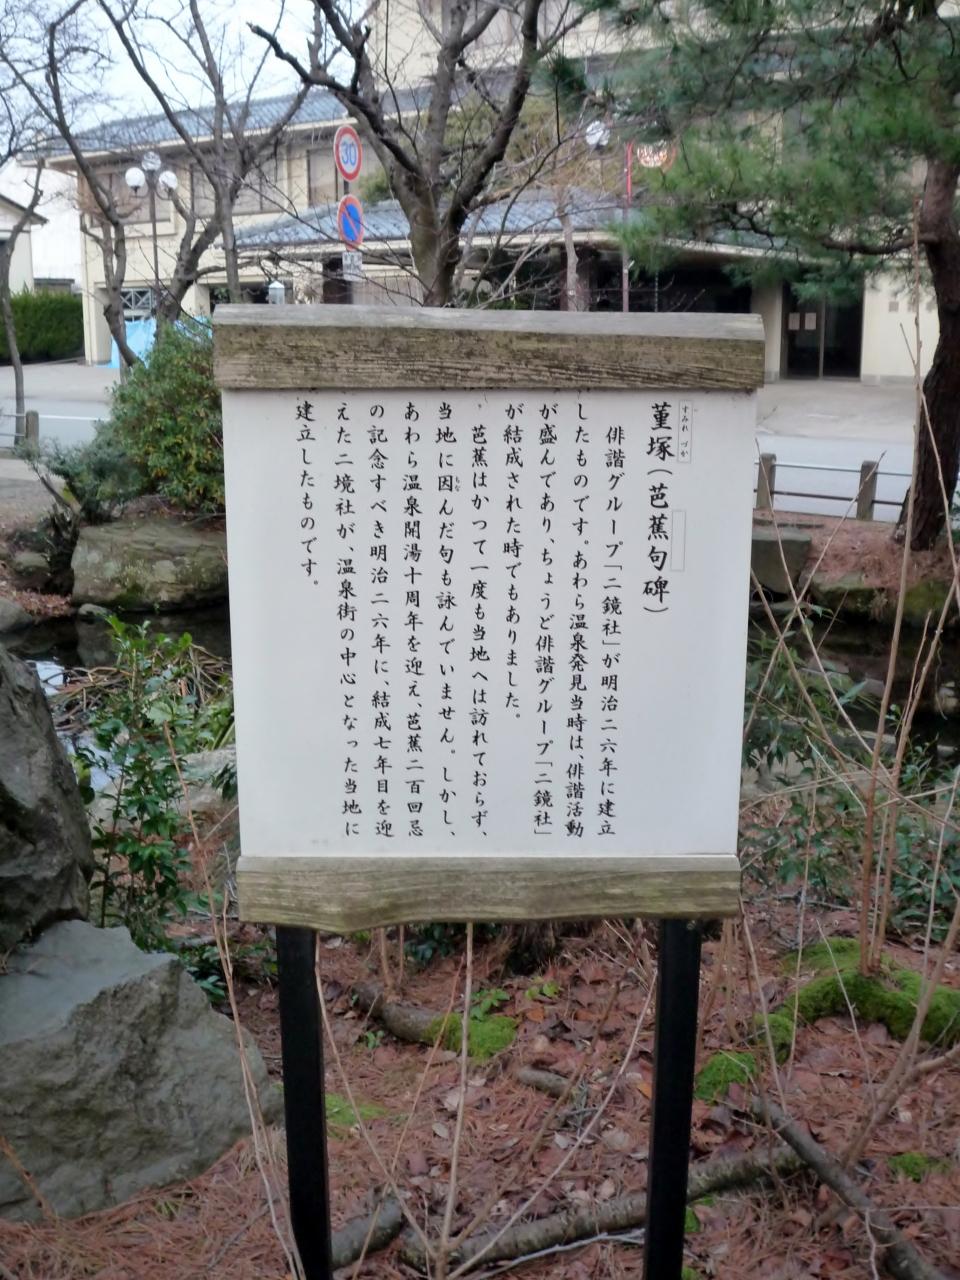 菫塚（芭蕉句碑）
すみれ づか
俳諧グループ「二鏡社」が明治二六年に建立
したものです。あわら温泉発見当時は、俳諧活動
が盛んであり、ちょうど俳諧グループ「二鏡社」
が結成された時でもありました。
芭蕉はかつて一度も当地へは訪れておらず、
当地に因んだ句も詠んでいません。しかし、
ちな
あわら温泉開湯十周年を迎え、芭蕉二百回忌
の記念すべき明治二六年に、結成七年目を迎
えた二境社が、温泉街の中心となった当地に
建立したものです。
30